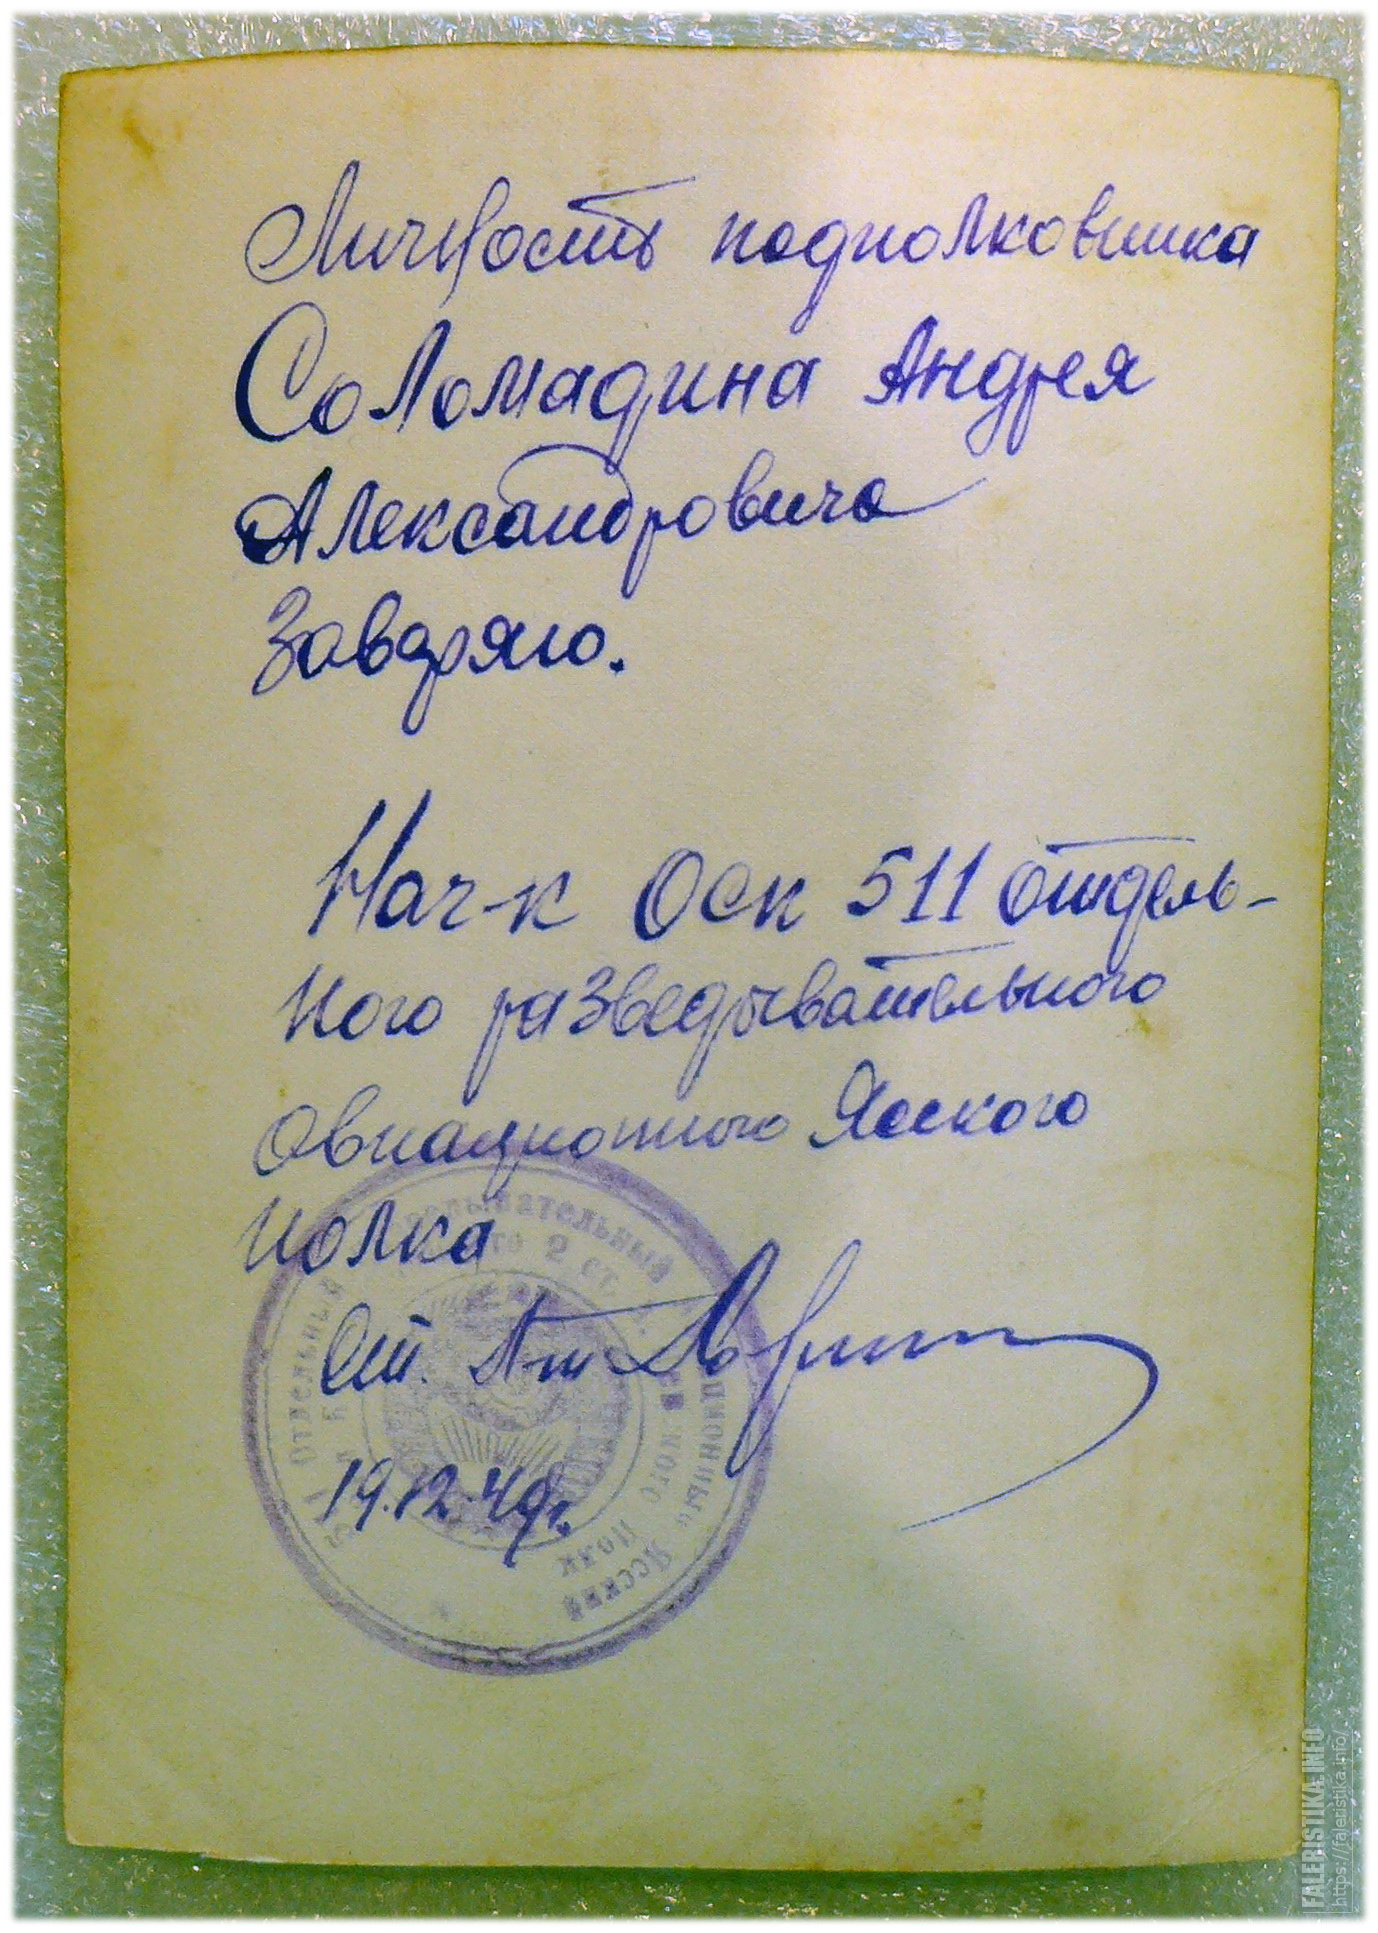 Личность подполковника
Соломадина Андрея
Александровича
Заверяю.
Нач-к ОСК 511 отдель-
ного разведывательного
Авиационного Ясского
полка
Ст. л-т
19.12.49г.
Отдельный разведывательный авиационный Ясский
полк
FALERISTIKA.INFO
https://faleristika.info/